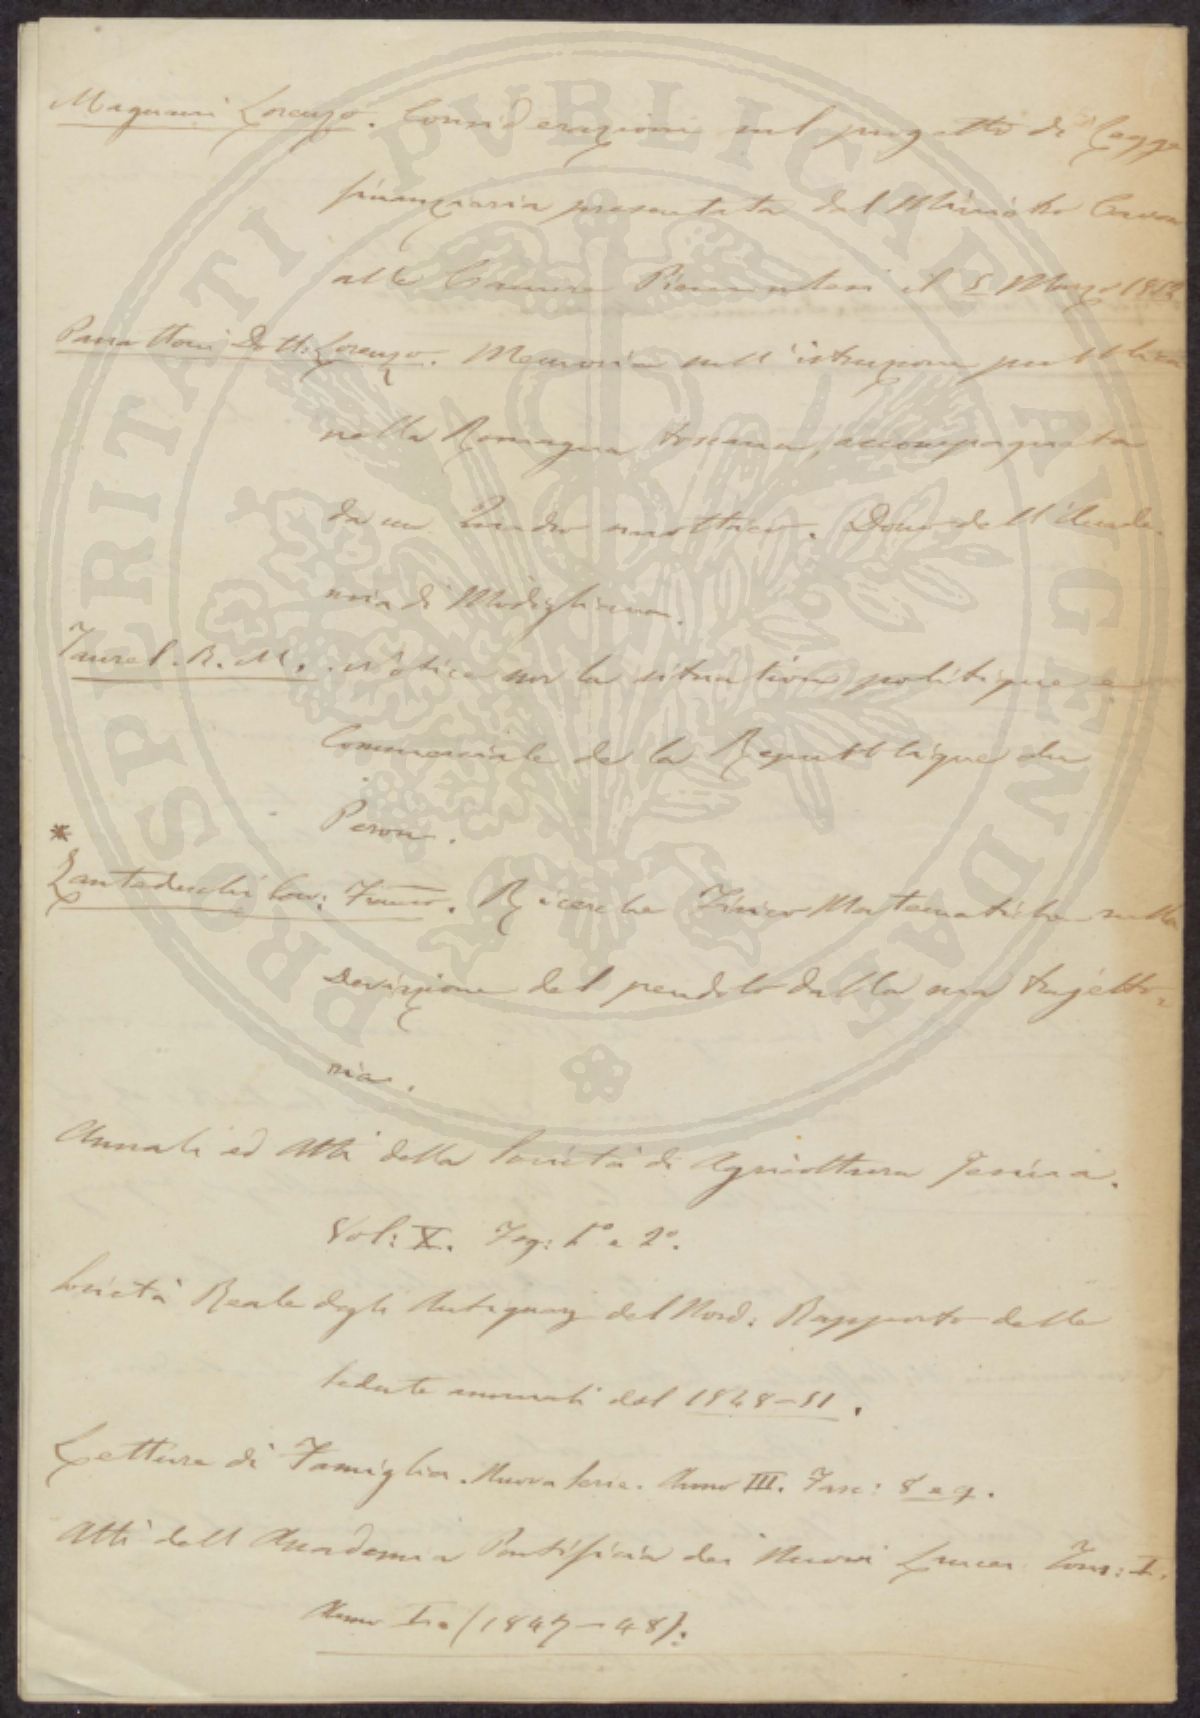 Magnani Lorenzo. Considerazioni sul progetto di Legge
finanziaria presentata dal Ministro Cavour
alle Camere Piemontesi il 5 Marzo
Dott: Lorenzo. Memoria sull'istruzione pubblica
nella Romagna toscana, accompagnata
da un Quadro sinottico. Dono dell'Accade-
mia di Modigliana.
Taurel. R. M. Notice sur la situation politique e
Commerciale de la Republique du
Perou.
* Zantedeschi Cav: Franco. Ricerche Fisico Matematiche sulla
Deviazione del pendolo dalla sua trajetto-
ria.
Annali ed Atti della Società di Agricoltura Jesina.
Vol: X. Fog: 1° e 2°.
Società Reale degli Antiquarj del Nord: Rapporto delle
sedute annuali del 1848-51.
Letture di Famiglia. Nuova Serie. Anno III. Fasc: 8 e 9.
Atti dell'Accademia Pontificia dei Nuovi Lincei Tom: I.
Anno I. (1847-48).
PROSPERITATI PVBLICAE AVGENDAE